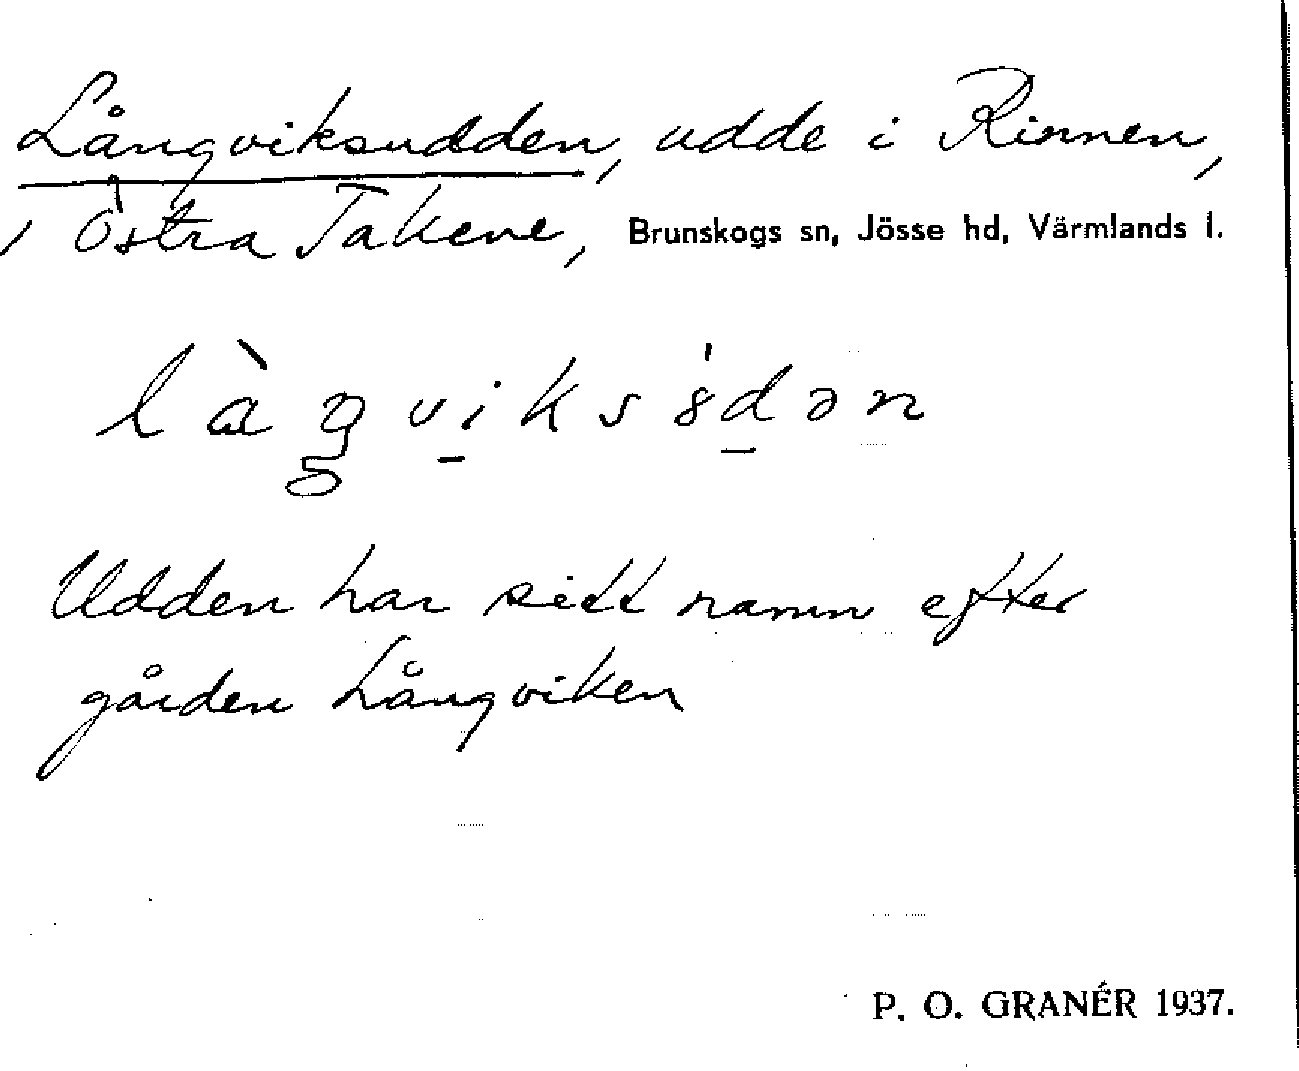 Långviksudden, udde i Rinnen,
Östra Takene, Brunskogs sn, Jösse hd, Värmlands l.
Udden har sitt namn efter
gården Långviken
P. O. GRANÉR 1937.